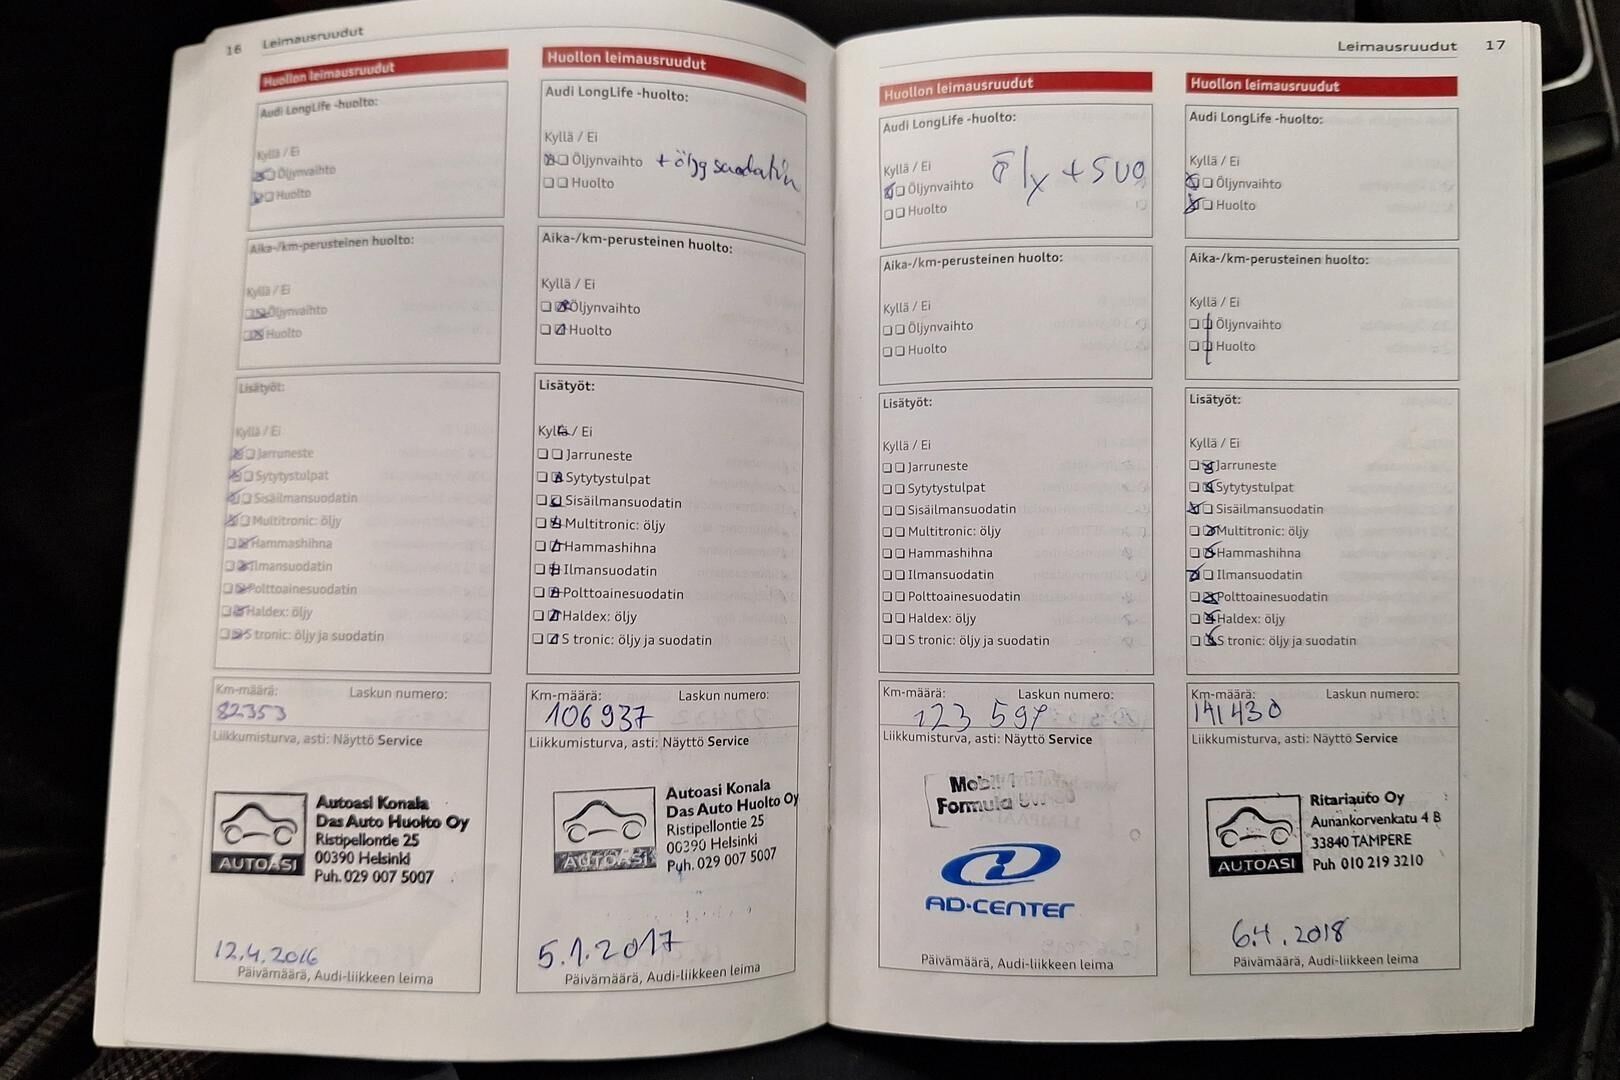 16 Leimausruudut
Huollon leimausruudut
Audi LongLife -huolto:
Kyllä / Ei
Öljynvaihto
Huolto
Aika-/km-perusteinen huolto:
Kyllä / Ei
Öljynvaihto
Huolto
Lisätyöt:
Kyllä / Ei
Jarruneste
Sytytystulpat
Sisäilmansuodatin
Multitronic: öljy
Hammashihna
Ilmansuodatin
Polttoainesuodatin
Haldex: öljy
S tronic: öljy ja suodatin
Km-määrä: Laskun numero:
82353
Liikkumisturva, asti: Näyttö Service
AUTOASI
Autoasi Konala
Das Auto Huolto Oy
Ristipellontie 25
00390 Helsinki
Puh. 029 007 5007
12.4.2016
Päivämäärä, Audi-liikkeen leima
Huollon leimausruudut
Audi LongLife -huolto:
Kyllä / Ei
Öljynvaihto + öljysuodatin
Huolto
Aika-/km-perusteinen huolto:
Kyllä / Ei
Öljynvaihto
Huolto
Lisätyöt:
Kyllä / Ei
Jarruneste
Sytytystulpat
Sisäilmansuodatin
Multitronic: öljy
Hammashihna
Ilmansuodatin
Polttoainesuodatin
Haldex: öljy
S tronic: öljy ja suodatin
Km-määrä: Laskun numero:
106937
Liikkumisturva, asti: Näyttö Service
AUTOASI
Autoasi Konala
Das Auto Huolto Oy
Ristipellontie 25
00390 Helsinki
Puh. 029 007 5007
5.1.2017
Päivämäärä, Audi-liikkeen leima
Leimausruudut 17
Huollon leimausruudut
Audi LongLife -huolto:
Kyllä / Ei
Öljynvaihto
Huolto
Aika-/km-perusteinen huolto:
Kyllä / Ei
Öljynvaihto
Huolto
Lisätyöt:
Kyllä / Ei
Jarruneste
Sytytystulpat
Sisäilmansuodatin
Multitronic: öljy
Hammashihna
Ilmansuodatin
Polttoainesuodatin
Haldex: öljy
S tronic: öljy ja suodatin
Km-määrä: Laskun numero:
Liikkumisturva, asti: Näyttö Service
Mobil 1
Formula
AD-CENTER
Päivämäärä, Audi-liikkeen leima
Huollon leimausruudut
Audi LongLife -huolto:
Kyllä / Ei
Öljynvaihto
Huolto
Aika-/km-perusteinen huolto:
Kyllä / Ei
Öljynvaihto
Huolto
Lisätyöt:
Kyllä / Ei
Jarruneste
Sytytystulpat
Sisäilmansuodatin
Multitronic: öljy
Hammashihna
Ilmansuodatin
Polttoainesuodatin
Haldex: öljy
S tronic: öljy ja suodatin
Km-määrä: Laskun numero:
141430
Liikkumisturva, asti: Näyttö Service
AUTOASI
Ritariauto Oy
Aunankorvenkatu 4 B
33840 TAMPERE
Puh 010 219 3210
6.4.2018
Päivämäärä, Audi-liikkeen leima